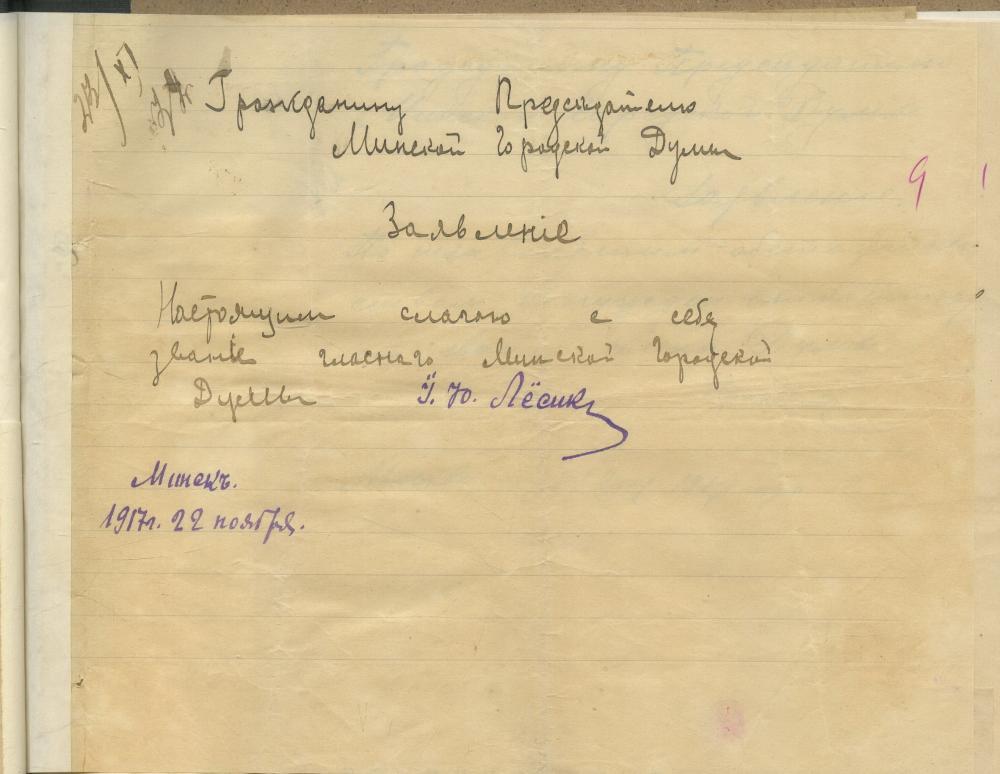 22/XI
Гражданину Председателю
Минской Городской Думы
9
Заявленіе
Настоящим слагаю с себя
званіе гласнаго Минской Городской
Думы Ў. Ю. Лёсик
Минскъ.
1917г. 22 ноября.